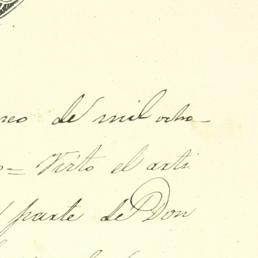 neo de mil ocho-
o= Visto el arti
parte de Don